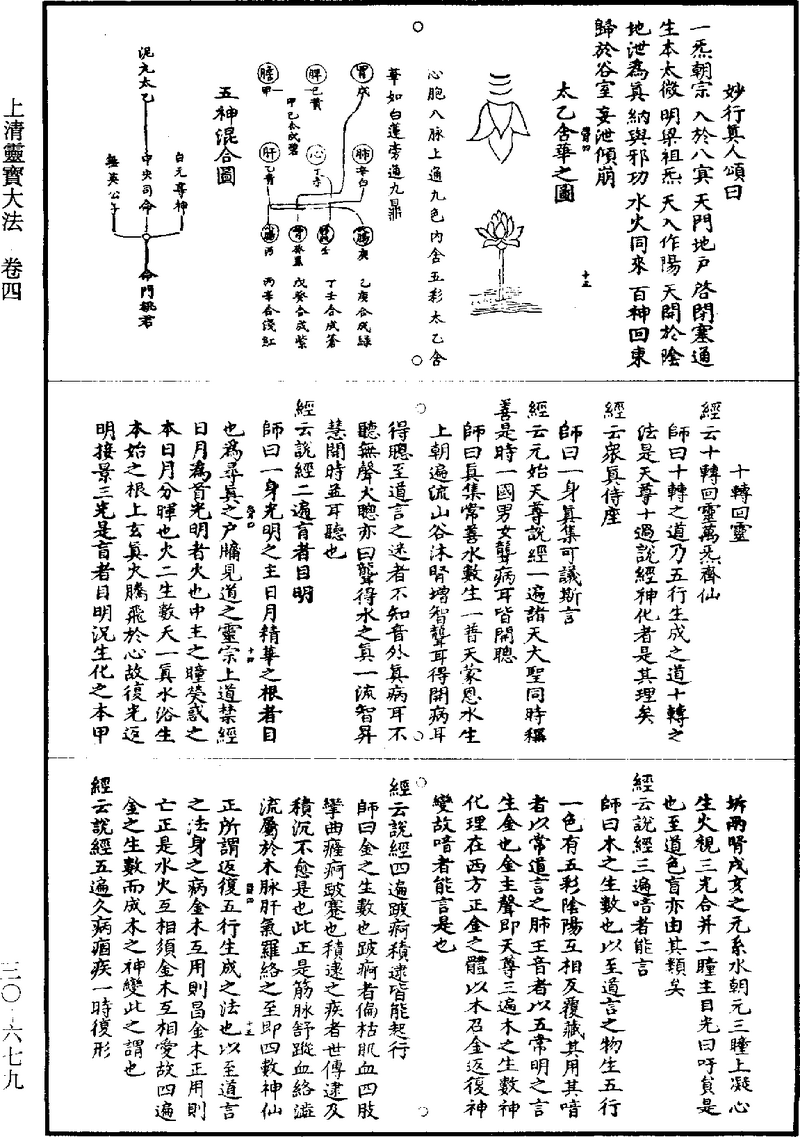 上清靈寶大法 卷四
三〇·六七九
妙行真人頌曰
一炁朝宗 入於八㝠 天門地戶 啓閉塞通
生本太微 明梁祖炁 天入作陽 天開於陰
地泄為真 納與邪功 水火同來 百神回東
歸於谷室 妄泄傾崩
太乙含華之圖
心胞八脉上通九色內含五彩太乙含
華如白蓮旁通九鼎
胃 戊
脾 己黃
膽 甲
甲己合成碧
肺 辛白
心 丁赤
肝 乙青
腸 庚
壬
腎 癸黑
腸 丙
乙庚合成綠
丁壬合成蒼
戊癸合成紫
丙辛合淺紅
五神混合圖
泥丸太乙
中央司命
白元尊神
無英公子
命門桃君
十轉回靈
經云十轉回靈萬炁齊仙
師曰十轉之道乃五行生成之道十轉之
法是天尊十過說經神化者是其理矣
經云衆真侍座
師曰一身真集可議斯言
經云元始天尊說經一遍諸天大聖同時稱
善是時一國男女聾病耳皆開聰
師曰真集常善水數生一普天蒙恩水生
上朝遍流山谷沐腎增智聾耳得開病耳
得聰至道言之迷者不知音外真病耳不
聽無聲大聰亦曰聾得水之真一流智昇
慧開時益耳聽也
經云說經二遍盲者目明
師曰一身光明之主日月精華之根者目
也為尋真之戶牖見道之靈宗上道禁經
日月為首光明者火也中主之瞳熒惑之
本日月分暉也火二生數天一真水浴生
本始之根上玄真火騰飛於心故復光返
明接景三光是盲者目明況生化之本甲
拆兩腎戌亥之元系水朝元三瞳上凝心
生火視三光合并二瞳主目光曰吁貧是
也至道色盲亦由其類矣
經云說經三遍喑者能言
師曰木之生數也以至道言之物生五行
一色有五彩陰陽互相反覆藏其用其喑
者以常道言之肺王音者以五常明之言
生金也金主聲即天尊三遍木之生數神
化理在西方正金之體以木召金返復神
變故喑者能言是也
經云說經四遍跛痾積逮皆能起行
師曰金之生數也跛痾者偏枯肌血四肢
攣曲癃痾跛蹇也積逮之疾者世傳逮及
積沉不愈是也此正是筋脉舒蹤血絡澁
流屬於木脉肝氣羅絡之至即四數神仙
正所謂返復五行生成之法也以至道言
之法身之病金木互用則昌金木正用則
亡正是水火互相須金木互相愛故四遍
金之生數而成木之神變此之謂也
經云說經五遍久病痼疾一時復形